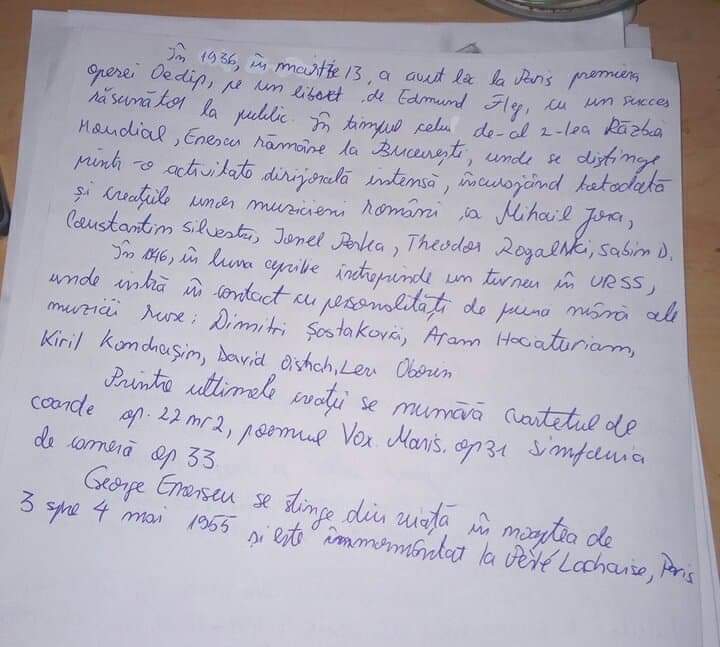 În 1936, în martie 13, a avut loc la Paris premiera
operei Oedip, pe un libret de Edmund Fleg, cu un succes
răsunător la public. În timpul celui de-al 2-lea Război
Mondial, Enescu rămâne la București, unde se distinge
printr-o activitate dirijorală intensă, încurajând totodată
și creațiile unor muzicieni români ca Mihail Jora,
Constantin Silvestri, Ionel Perlea, Theodor Rogalski, Sabin D.
În 1946, în luna aprilie întreprinde un turneu în URSS,
unde intră în contact cu personalități de prima mână ale
muzicii ruse: Dimitri Șostakovici, Aram Haciaturian,
Kiril Kondrașin, David Oistrah, Lev Oborin
Printre ultimele creații se numără cvartetul de
coarde op. 22 nr 2, poemul Vox Maris, op 31 simfonia
de cameră op 33
George Enescu se stinge din viață în noaptea de
3 spre 4 mai 1955 și este înmormântat la Père Lachaise, Paris